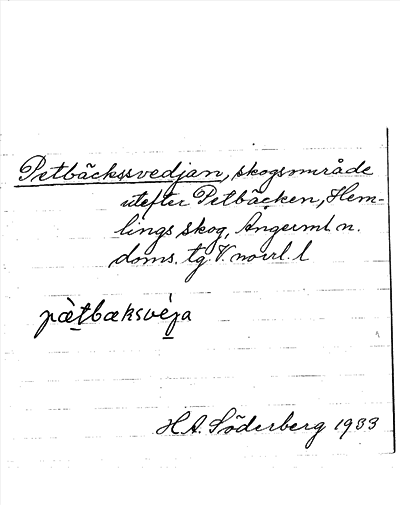 Petbäckssvedjan, skogsområde
utefter Petbäcken, Hem-
lings skog, Ångerml. n.
doms. tg. V. norrl. l
pæ̀tbæksvéja
H. A. Söderberg 1933